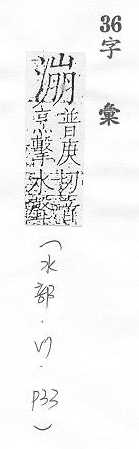 36字 彙
普庚切音
烹擊水聲
(水部 · · P33)